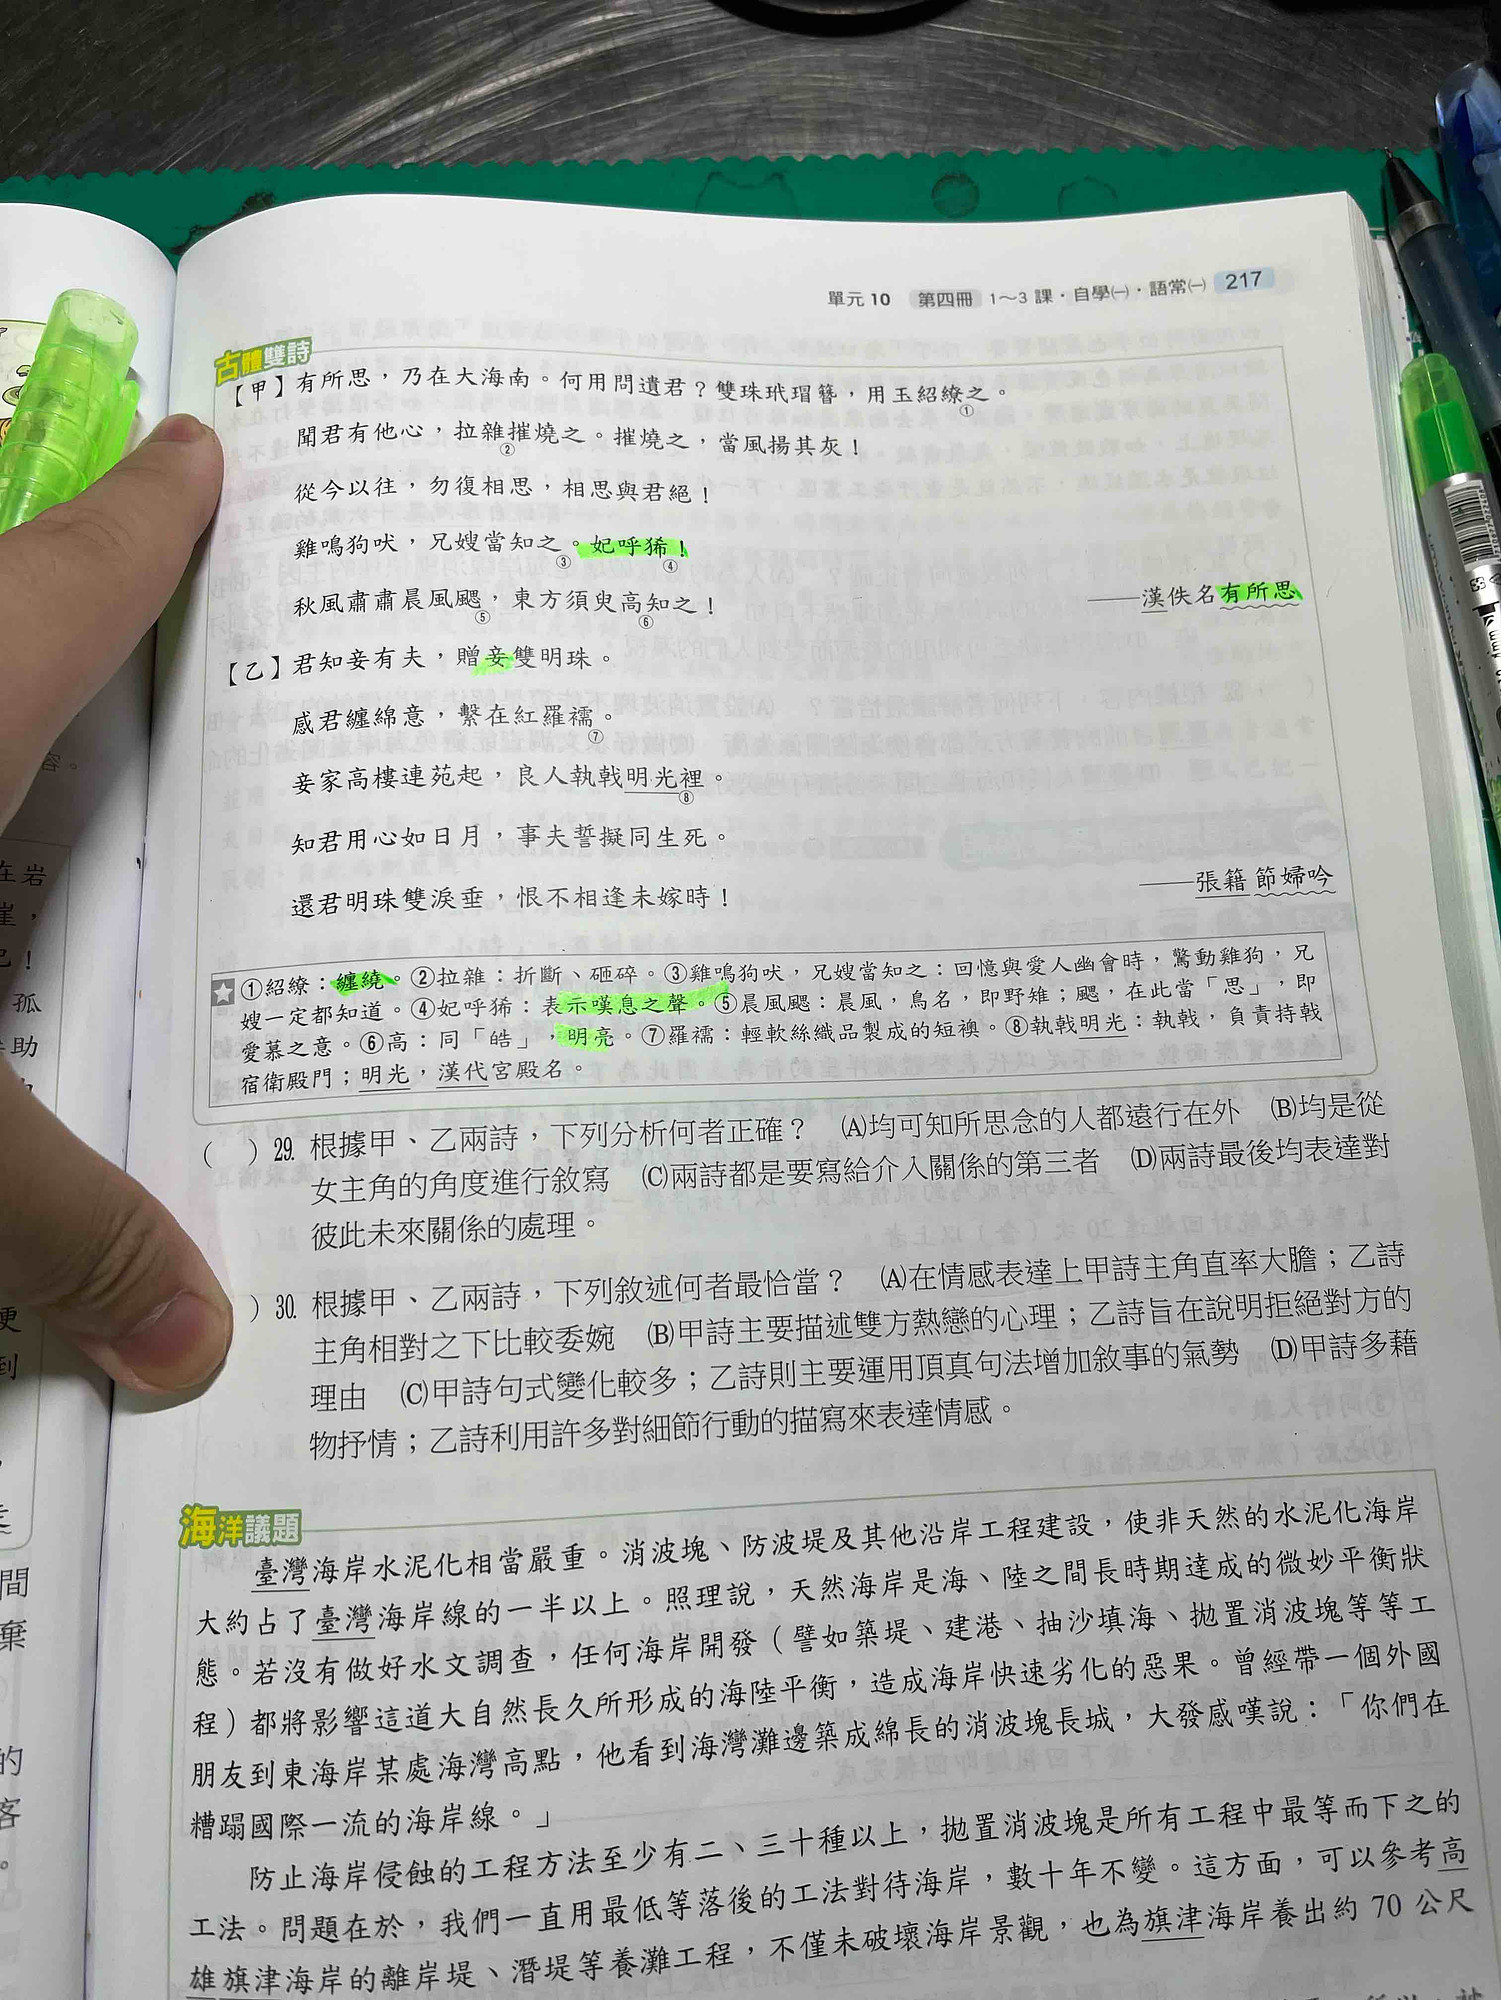 單元 10 第四冊 1～3 課・自學㈠・語常㈠ 217
古體雙詩
【甲】有所思，乃在大海南。何用問遺君？雙珠玳瑁簪，用玉紹繚之。
①
聞君有他心，拉雜摧燒之。摧燒之，當風揚其灰！
②
從今以往，勿復相思，相思與君絕！
雞鳴狗吠，兄嫂當知之。妃呼狶！
③ ④
秋風肅肅晨風颸，東方須臾高知之！
⑤ ⑥
——漢佚名有所思
【乙】君知妾有夫，贈妾雙明珠。
感君纏綿意，繫在紅羅襦。
⑦
妾家高樓連苑起，良人執戟明光裡。
⑧
知君用心如日月，事夫誓擬同生死。
還君明珠雙淚垂，恨不相逢未嫁時！
——張籍 節婦吟
①紹繚：纏繞。②拉雜：折斷、砸碎。③雞鳴狗吠，兄嫂當知之：回憶與愛人幽會時，驚動雞狗，兄
嫂一定都知道。④妃呼狶：表示嘆息之聲。⑤晨風颸：晨風，鳥名，即野雉；颸，在此當「思」，即
愛慕之意。⑥高：同「皓」，明亮。⑦羅襦：輕軟絲織品製成的短襖。⑧執戟明光：執戟，負責持戟
宿衛殿門；明光，漢代宮殿名。
（ ）29. 根據甲、乙兩詩，下列分析何者正確？ (A)均可知所思念的人都遠行在外 (B)均是從
女主角的角度進行敘寫 (C)兩詩都是要寫給介入關係的第三者 (D)兩詩最後均表達對
彼此未來關係的處理。
）30. 根據甲、乙兩詩，下列敘述何者最恰當？ (A)在情感表達上甲詩主角直率大膽；乙詩
主角相對之下比較委婉 (B)甲詩主要描述雙方熱戀的心理；乙詩旨在說明拒絕對方的
理由 (C)甲詩句式變化較多；乙詩則主要運用頂真句法增加敘事的氣勢 (D)甲詩多藉
物抒情；乙詩利用許多對細節行動的描寫來表達情感。
海洋議題
臺灣海岸水泥化相當嚴重。消波塊、防波堤及其他沿岸工程建設，使非天然的水泥化海岸
大約占了臺灣海岸線的一半以上。照理說，天然海岸是海、陸之間長時期達成的微妙平衡狀
態。若沒有做好水文調查，任何海岸開發（譬如築堤、建港、抽沙填海、拋置消波塊等等工
程）都將影響這道大自然長久所形成的海陸平衡，造成海岸快速劣化的惡果。曾經帶一個外國
朋友到東海岸某處海灣高點，他看到海灣灘邊築成綿長的消波塊長城，大發感嘆說：「你們在
糟蹋國際一流的海岸線。」
防止海岸侵蝕的工程方法至少有二、三十種以上，拋置消波塊是所有工程中最等而下之的
工法。問題在於，我們一直用最低等落後的工法對待海岸，數十年不變。這方面，可以參考高
雄旗津海岸的離岸堤、潛堤等養灘工程，不僅未破壞海岸景觀，也為旗津海岸養出約 70 公尺